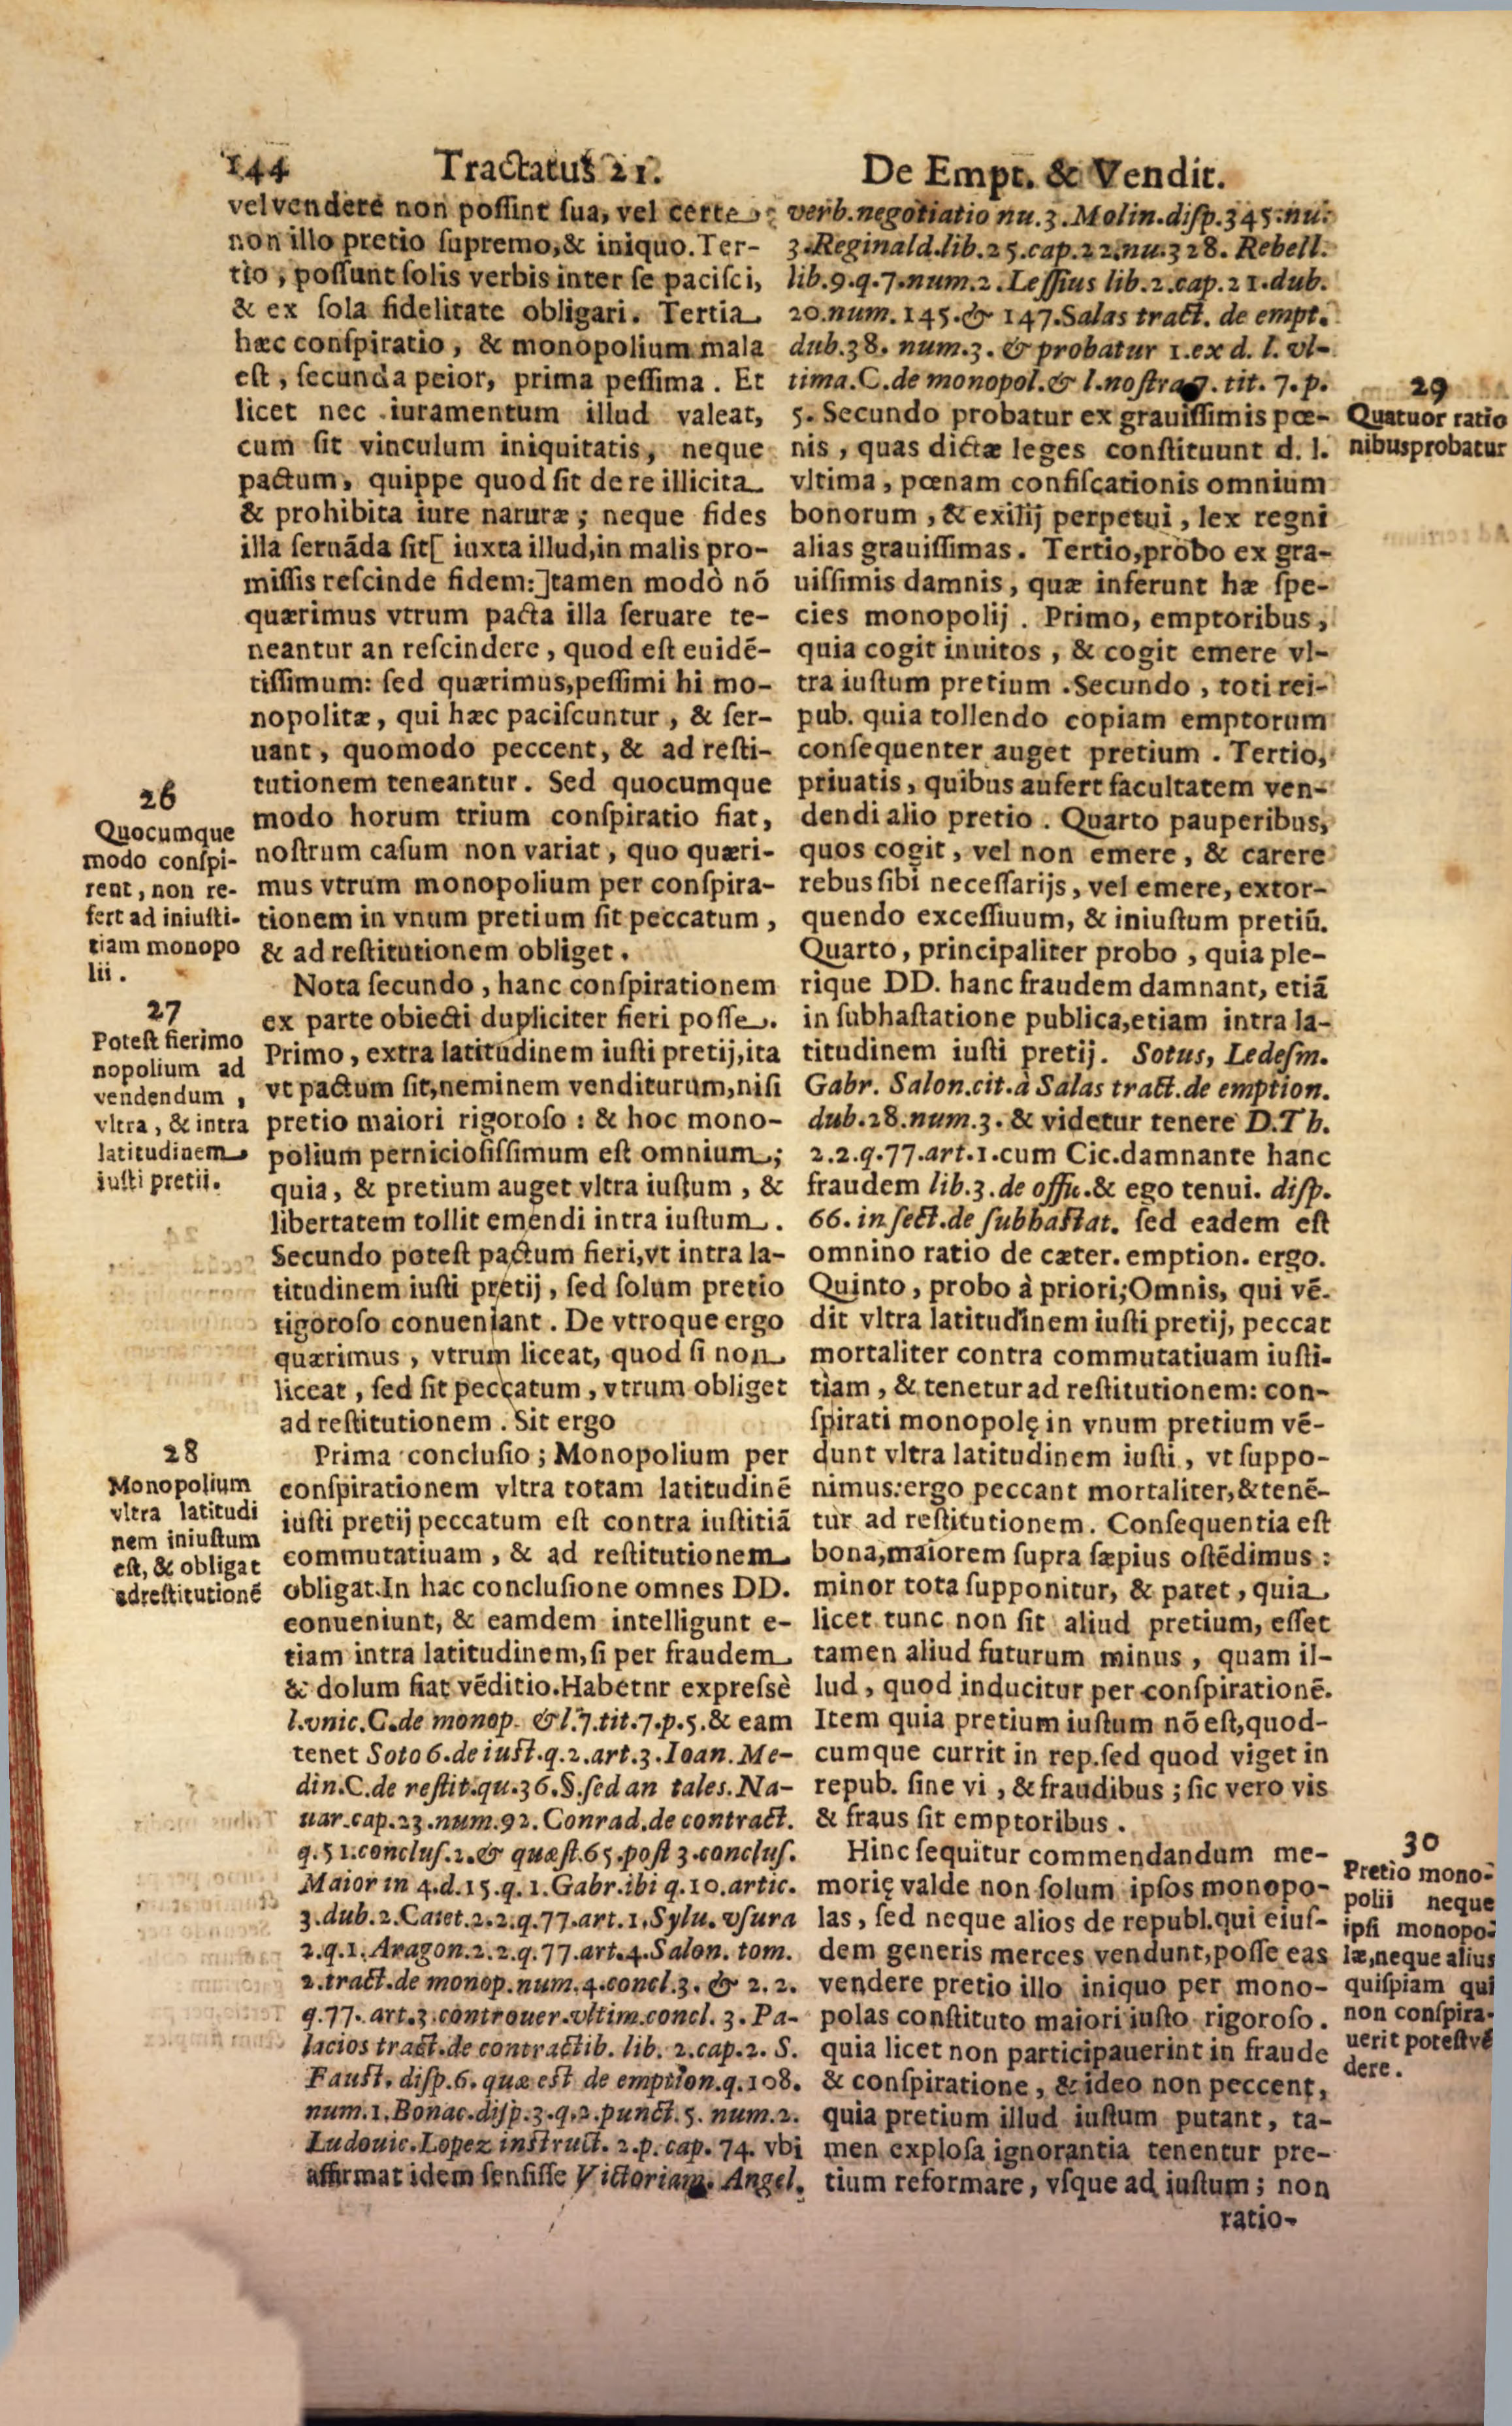 144 Tractatus 21. De Empt. & Vendit.
vel vendere non poſſint ſua, vel certe
non illo pretio ſupremo, & iniquo. Ter-
tio, poſſunt ſolis verbis inter ſe paciſci,
& ex ſola fidelitate obligari. Tertia
hæc conſpiratio, & monopolium mala
eſt, ſecunda peior, prima peſſima. Et
licet nec iuramentum illud valeat,
cum ſit vinculum iniquitatis, neque
pactum, quippe quod ſit de re illicita
& prohibita iure naruræ; neque fides
illa ſeruãda ſit[ iuxta illud, in malis pro-
miſſis reſcinde fidem:]tamen modò nõ
quærimus vtrum pacta illa ſeruare te-
neantur an reſcindere, quod eſt euidẽ-
tiſſimum: ſed quærimus, peſſimi hi mo-
nopolitæ, qui hæc paciſcuntur, & ſer-
uant, quomodo peccent, & ad reſti-
tutionem teneantur. Sed quocumque
modo horum trium conſpiratio fiat,
noſtrum caſum non variat, quo quæri-
mus vtrum monopolium per conſpira-
tionem in vnum pretium ſit peccatum,
& ad reſtitutionem obliget.
26
Quocumque
modo conſpi-
rent, non re-
fert ad iniuſti-
tiam monopo
lii.
Nota ſecundo, hanc conſpirationem
ex parte obiecti dupliciter fieri poſſe.
Primo, extra latitudinem iuſti pretij, ita
vt pactum ſit, neminem venditurum, niſi
pretio maiori rigoroſo: & hoc mono-
polium pernicioſiſſimum eſt omnium;
quia, & pretium auget vltra iuſtum, &
libertatem tollit emendi intra iuſtum.
Secundo poteſt pactum fieri, vt intra la-
titudinem iuſti pretij, ſed ſolum pretio
rigoroſo conueniant. De vtroque ergo
quærimus, vtrum liceat, quod ſi non
liceat, ſed ſit peccatum, vtrum obliget
ad reſtitutionem. Sit ergo
27
Poteſt fieri mo
nopolium ad
vendendum,
vltra, & intra
latitudinem
iuſti pretii.
Prima concluſio; Monopolium per
conſpirationem vltra totam latitudinẽ
iuſti pretij peccatum eſt contra iuſtitiã
commutatiuam, & ad reſtitutionem
obligat. In hac concluſione omnes DD.
conueniunt, & eamdem intelligunt e-
tiam intra latitudinem, ſi per fraudem
& dolum fiat vẽditio. Habetnr expreſsè
l. vnic. C. de monop. & l. 7. tit. 7. p. 5. & eam
tenet Soto 6. de iuſt. q. 2. art. 3. Ioan. Me-
din. C. de reſtit. qu. 36. §. ſed an tales. Na-
uar. cap. 23. num. 92. Conrad. de contract.
q. 51. concluſ. 2. & quæſt. 65. poſt 3. concluſ.
Maior in 4. d. 15. q. 1. Gabr. ibi q. 10. artic.
3. dub. 2. Caiet. 2. 2. q. 77. art. 1. Sylu. vſura
2. q. 1. Aragon. 2. 2. q. 77. art. 4. Salon. tom.
2. tract. de monop. num. 4. concl. 3. & 2. 2.
q. 77. art. 3. controuer. vltim. concl. 3. Pa-
lacios tract. de contractib. lib. 2. cap. 2. S.
Fauſt. diſp. 6. quæ eſt de emption. q. 108.
num. 1. Bonac. diſp. 3. q. 2. punct. 5. num. 2.
Ludouic. Lopez inſtruct. 2. p. cap. 74. vbi
affirmat idem ſenſiſſe Victoriam. Angel.
28
Monopolium
vltra latitudi
nem iniuſtum
eſt, & obligat
ad reſtitutionẽ
verb. negotiatio nu. 3. Molin. diſp. 345. nu.
3. Reginald. lib. 25. cap. 22. nu. 328. Rebell.
lib. 9. q. 7. num. 2. Leſſius lib. 2. cap. 21. dub.
20. num. 145. & 147. Salas tract. de empt.
dub. 38. num. 3. & probatur 1. ex d. l. vl-
tima. C. de monopol. & l. noſtra 7. tit. 7. p.
5. Secundo probatur ex grauiſſimis pœ-
nis, quas dictæ leges conſtituunt d. l.
vltima, pœnam confiſcationis omnium
bonorum, & exilij perpetui, lex regni
alias grauiſſimas. Tertio, probo ex gra-
uiſſimis damnis, quæ inferunt hæ ſpe-
cies monopolij. Primo, emptoribus,
quia cogit inuitos, & cogit emere vl-
tra iuſtum pretium. Secundo, toti rei-
pub. quia tollendo copiam emptorum
conſequenter auget pretium. Tertio,
priuatis, quibus aufert facultatem ven-
dendi alio pretio. Quarto pauperibus,
quos cogit, vel non emere, & carere
rebus ſibi neceſſarijs, vel emere, extor-
quendo exceſſiuum, & iniuſtum pretiũ.
Quarto, principaliter probo, quia ple-
rique DD. hanc fraudem damnant, etiã
in ſubhaſtatione publica, etiam intra la-
titudinem iuſti pretij. Sotus, Ledeſm.
Gabr. Salon. cit. à Salas tract. de emption.
dub. 28. num. 3. & videtur tenere D. Th.
2. 2. q. 77. art. 1. cum Cic. damnante hanc
fraudem lib. 3. de offic. & ego tenui. diſp.
66. in ſect. de ſubhaſtat. ſed eadem eſt
omnino ratio de cæter. emption. ergo.
Quinto, probo à priori; Omnis, qui vẽ-
dit vltra latitudinem iuſti pretij, peccat
mortaliter contra commutatiuam iuſti-
tiam, & tenetur ad reſtitutionem: con-
ſpirati monopolę in vnum pretium vẽ-
dunt vltra latitudinem iuſti, vt ſuppo-
nimus: ergo peccant mortaliter, & tenẽ-
tur ad reſtitutionem. Conſequentia eſt
bona, maiorem ſupra ſæpius oſtẽdimus:
minor tota ſupponitur, & patet, quia
licet tunc non ſit aliud pretium, eſſet
tamen aliud futurum minus, quam il-
lud, quod inducitur per conſpirationẽ.
Item quia pretium iuſtum nõ eſt, quod-
cumque currit in rep. ſed quod viget in
repub. ſine vi, & fraudibus; ſic vero vis
& fraus ſit emptoribus.
29
Quatuor ratio
nibus probatur
Hinc ſequitur commendandum me-
morię valde non ſolum ipſos monopo-
las, ſed neque alios de republ. qui eiuſ-
dem generis merces vendunt, poſſe eas
vendere pretio illo iniquo per mono-
polas conſtituto maiori iuſto rigoroſo.
quia licet non participauerint in fraude
& conſpiratione, & ideo non peccent,
quia pretium illud iuſtum putant, ta-
men exploſa ignorantia tenentur pre-
tium reformare, vſque ad iuſtum; non
ratio-
30
Pretio mono-
polii neque
ipſi monopo-
læ, neque alius
quiſpiam qui
non conſpira-
uerit poteſt vẽ
dere.